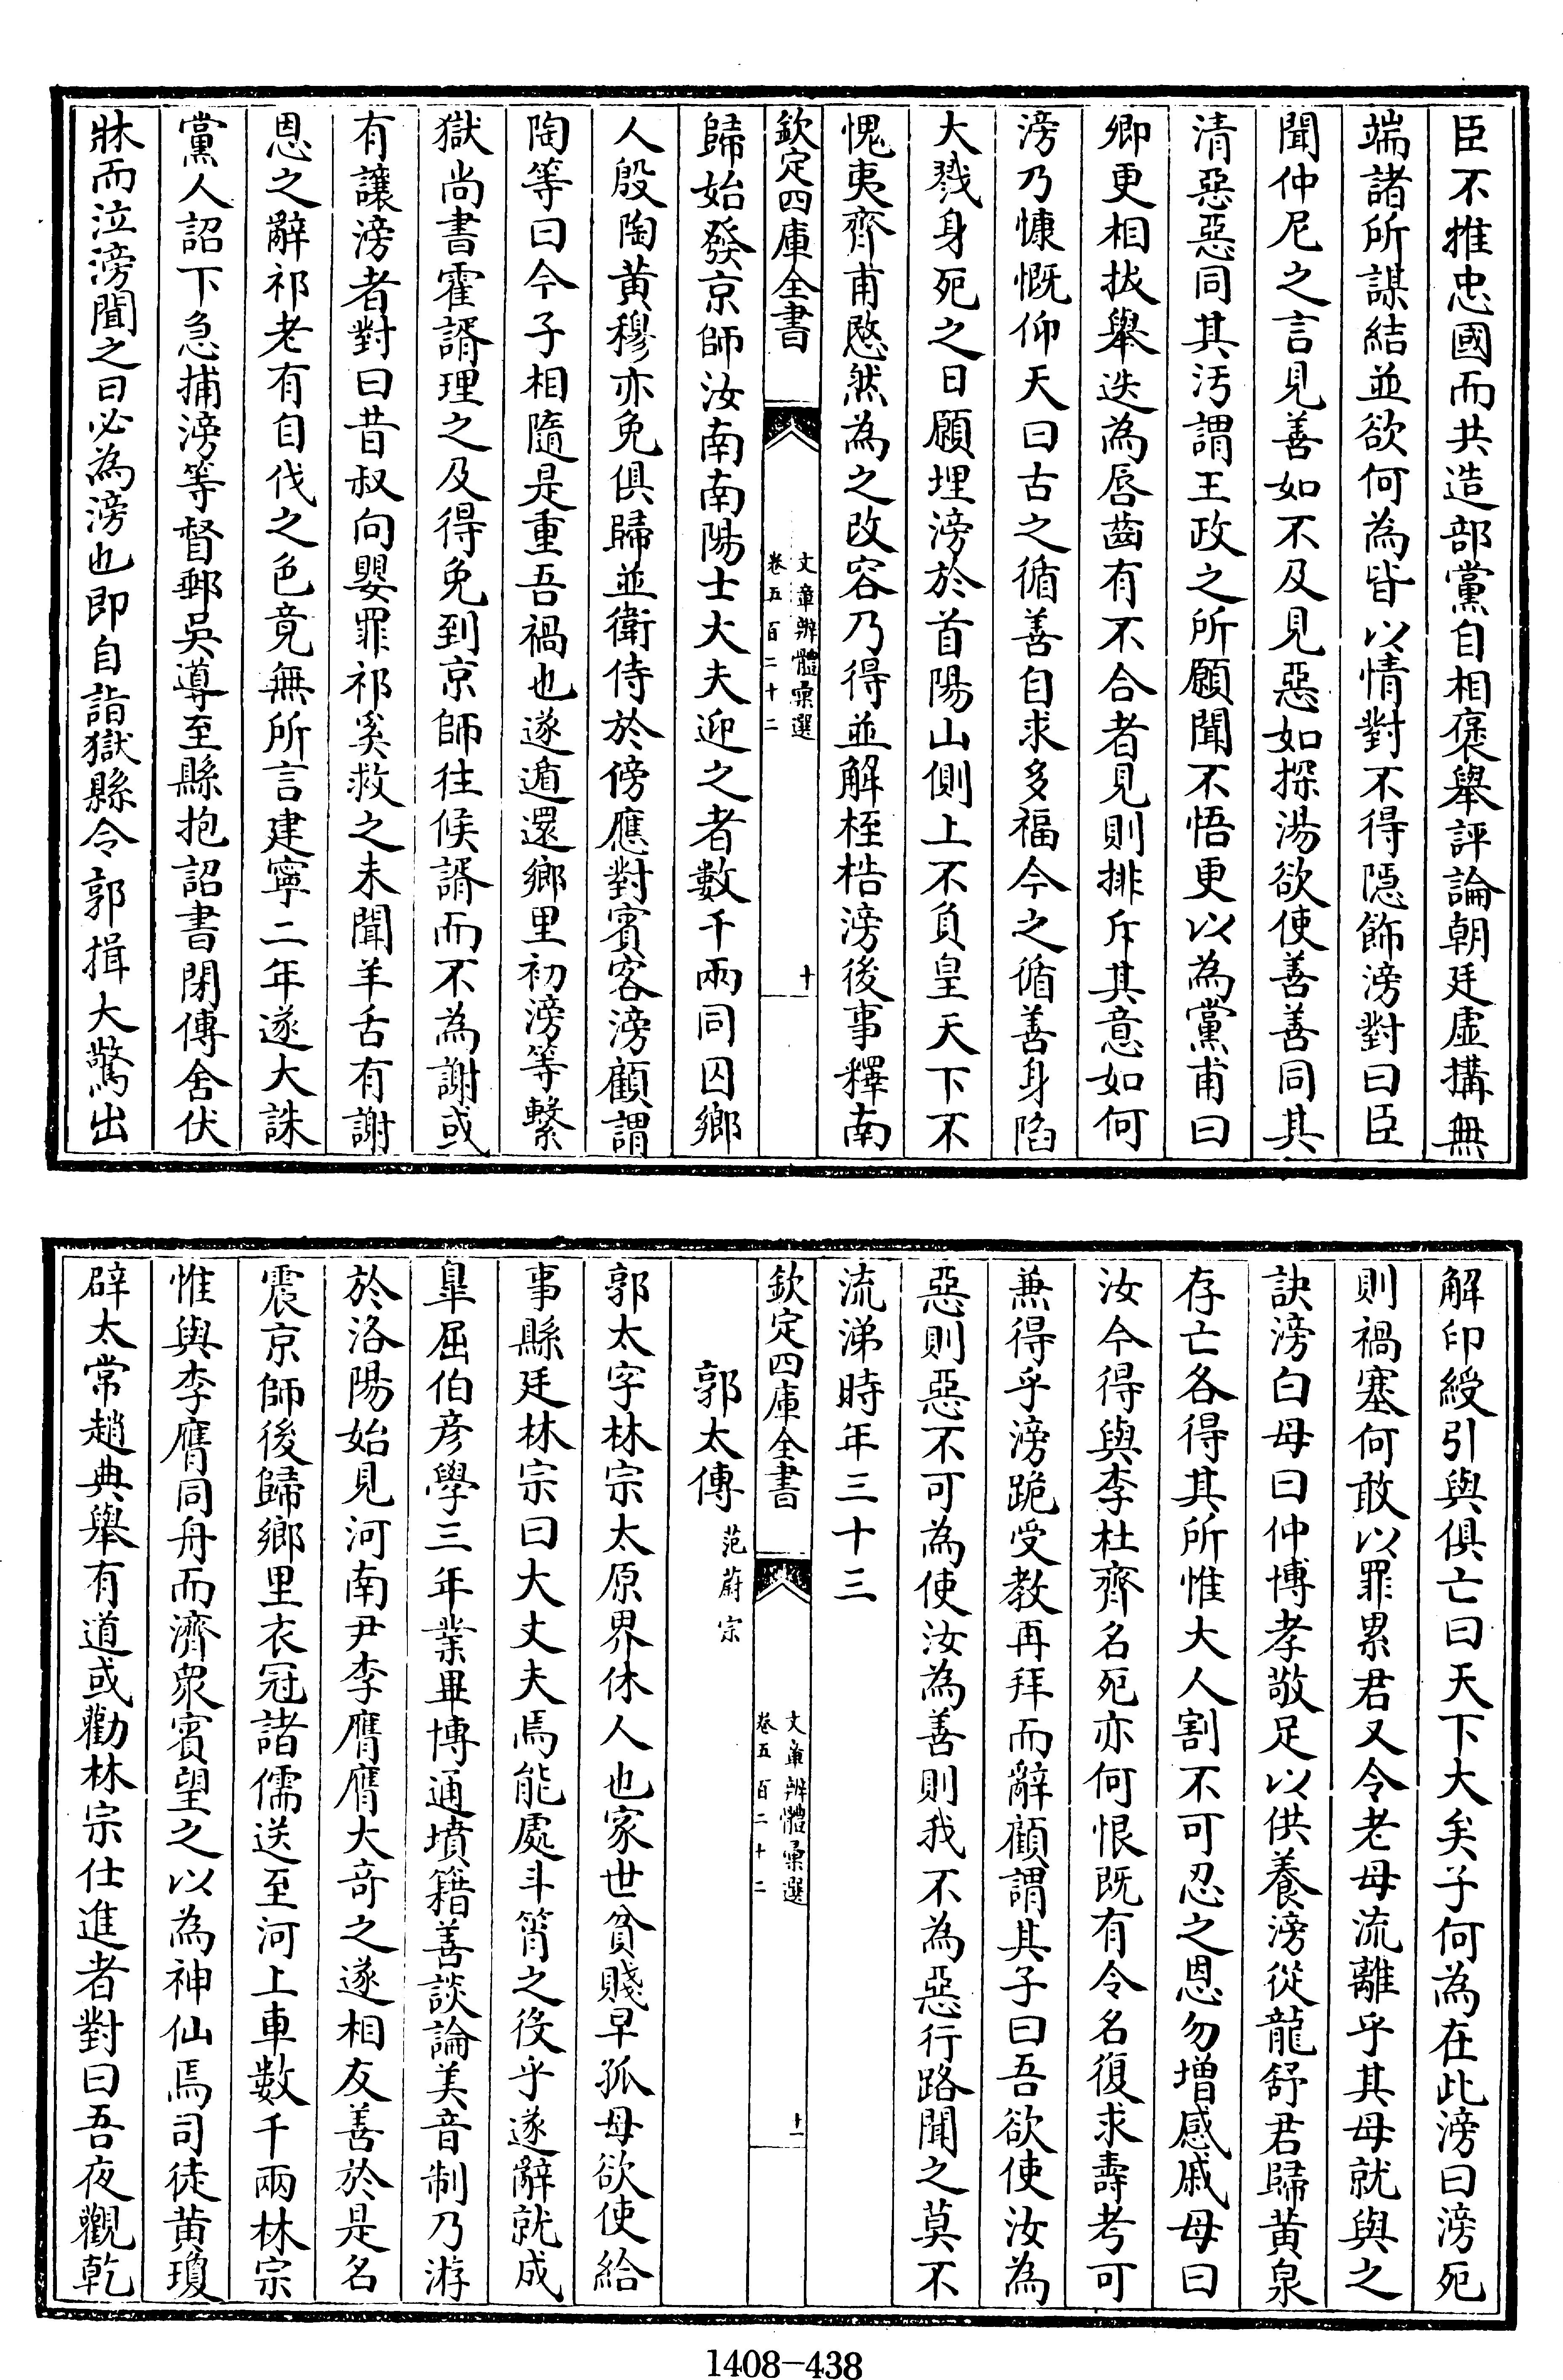 臣不惟忠國而共造部黨自相褒舉評論朝廷虛搆無
端諸所謀結並欲何為皆以情對不得隱飾滂對曰臣
聞仲尼之言見善如不及見惡如探湯欲使善善同其
清惡惡同其汚謂王政之所願聞不悟更以為黨甫曰
卿更相拔舉迭為唇齒有不合者見則排斥其意如何
滂乃慷慨仰天曰古之循善自求多福今之循善身陷
大戮身死之日願埋滂於首陽山側上不負皇天下不
愧夷齊甫愍然為之改容乃得並解桎梏滂後事釋南
欽定四庫全書
文章辨體彙選
卷五百二十二
十
歸始發京師汝南南陽士大夫迎之者數千兩同囚鄉
人殷陶黃穆亦免俱歸並衛侍於傍應對賓客滂顧謂
陶等曰今子相隨是重吾禍也遂遁還鄉里初滂等繫
獄尚書霍諝理之及得免到京師往候諝而不為謝或
有讓滂者對曰昔叔向嬰罪祁奚救之未聞羊舌有謝
恩之辭祁老有自伐之色竟無所言建寧二年遂大誅
黨人詔下急捕滂等督郵吳導至縣抱詔書閉傳舍伏
牀而泣滂聞之曰必為滂也即自詣獄縣令郭揖大驚出
解印綬引與俱亡曰天下大矣子何為在此滂曰滂死
則禍塞何敢以罪累君又令老母流離乎其母就與之
訣滂白母曰仲博孝敬足以供養滂從龍舒君歸黃泉
存亡各得其所惟大人割不可忍之恩勿增感戚母曰
汝今得與李杜齊名死亦何恨既有令名復求壽考可
兼得乎滂跪受教再拜而辭顧謂其子曰吾欲使汝為
惡則惡不可為使汝為善則我不為惡行路聞之莫不
流涕時年三十三
欽定四庫全書
文章辨體彙選
卷五百二十二
十一
郭太傳 范蔚宗
郭太字林宗太原界休人也家世貧賤早孤母欲使給
事縣廷林宗曰大丈夫焉能處斗筲之役乎遂辭就成
臯屈伯彥學三年業畢博通墳籍善談論美音制乃游
於洛陽始見河南尹李膺膺大奇之遂相友善於是名
震京師後歸鄉里衣冠諸儒送至河上車數千兩林宗
惟與李膺同舟而濟衆賓望之以為神仙焉司徒黃瓊
辟太常趙典舉有道或勸林宗仕進者對曰吾夜觀乾
1408-438